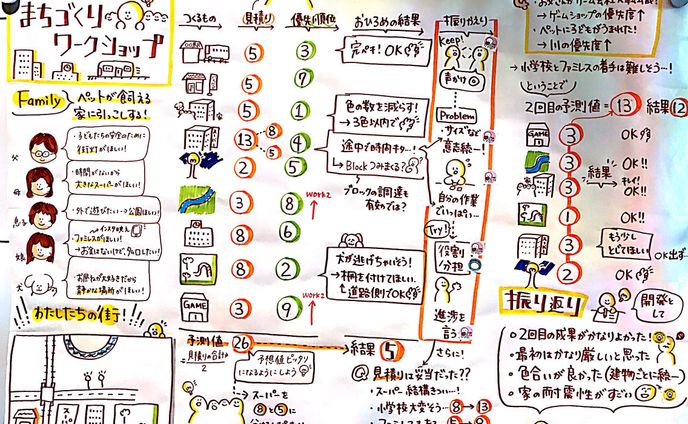 まちづくり
ワークショップ
Family
ペットが飼える
家に引っこしする!
父
・子どもたちの安全のために
街灯がほしい!
母
・時間がないから
大きなスーパーがほしい!
息子
・外で遊びたい→公園ほしい!
娘
ファミレスがほしい!
犬
静かな場所がほしい!
わたしたちの街!
つくるもの 見積り 優先順位
5 3
5 7
5 1
13→8 5 4
2 5
3 8 WORK2
8 6
8 2
GAME 3 9 WORK2
予測値 26
見積りの合計÷2
予想値ピッタリ
になるようにしよう
→スーパーを
8と5に
おひろめの結果
完ペキ!OK
色の数を減らす!
→3色以内で
途中で時間切れ…!
→Blockつみまくる?
ブロックの調達も
有効では?
犬が逃げちゃいそう!
→柵を付けてほしい。
道路側でOK
結果 5
さらに!
Q 見積りは妥当だった??
・スーパー結構きつい…!
・小学校大変そう… 8→13
振りかえり
Keep!
声かけ◎
Problem
・サイズなど
意志統一…!
自分の作業
でいっぱい…
Try!
役割
分担
進渉を
言う
→ゲームショップの優先度↑
・ペットに子どもがうまれた!
→川の優先度↑
→小学校とファミレスの着手は難しそう…!
ということで
2回目の予測値=13 結果12
GAME 3 OK
3 OK!!
3 キレイ! OK!!
1 OK!!
3 もう少しとどてほしい OK出ず
2 OK
結果
振り返り
開発と
して
・2回目の成果がかなりよかった!
・最初はかなり厳しいと思った
・色合いが良かった(建物ごとに統一)
・家の耐震性がすごい